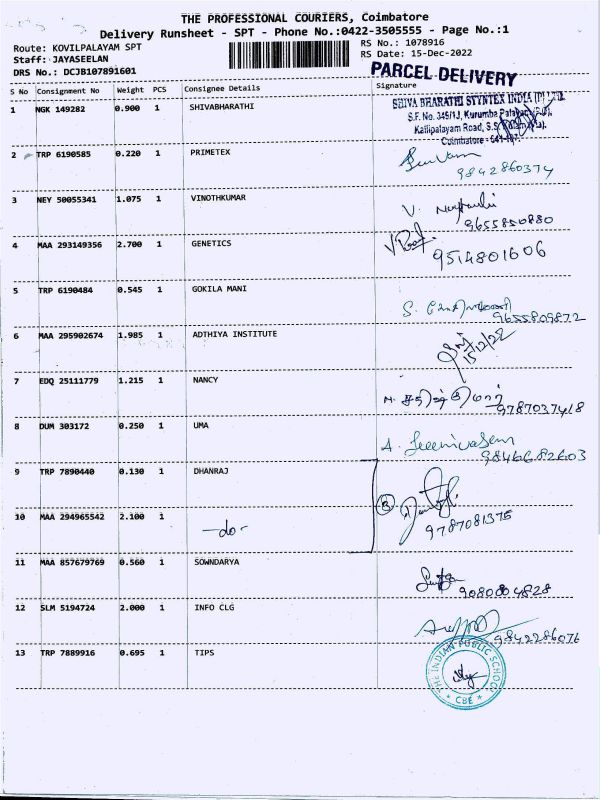 THE PROFESSIONAL COURIERS, Coimbatore
Delivery Runsheet - SPT - Phone No.:0422-3505555 - Page No.:1
Route: KOVILPALAYAM SPT
RS No.: 1078916
Staff: JAYASEELAN
RS Date: 15-Dec-2022
DRS No.: DCJB107891601
PARCEL DELIVERY
S No Consignment No Weight PCS Consignee Details Signature
1 NGK 149282 0.900 1 SHIVABHARATHI
SHIVA BHARATHI SYNTEX INDIA (P) LTD
S.F. No. 345/1J, Kurumba Palayam
Kallipalayam Road, S.S.
Coimbatore - 641
2 TRP 6190585 0.220 1 PRIMETEX
9842860374
3 NEY 50055341 1.075 1 VINOTHKUMAR V.
9655850880
4 MAA 293149356 2.700 1 GENETICS
9514801606
5 TRP 6190484 0.545 1 GOKILA MANI S.
9655809872
6 MAA 295902674 1.985 1 ADTHIYA INSTITUTE
15/12/22
7 EDQ 25111779 1.215 1 NANCY
9787037418
8 DUM 303172 0.250 1 UMA A. Sreenivasan
9846682603
9 TRP 7890440 0.130 1 DHANRAJ
10 MAA 294965542 2.100 1 -do-
9787081375
11 MAA 857679769 0.560 1 SOWNDARYA
9080004828
12 SLM 5194724 2.000 1 INFO CLG
9842286076
13 TRP 7889916 0.695 1 TIPS
THE INDIAN PUBLIC SCHOOL
* CBE *